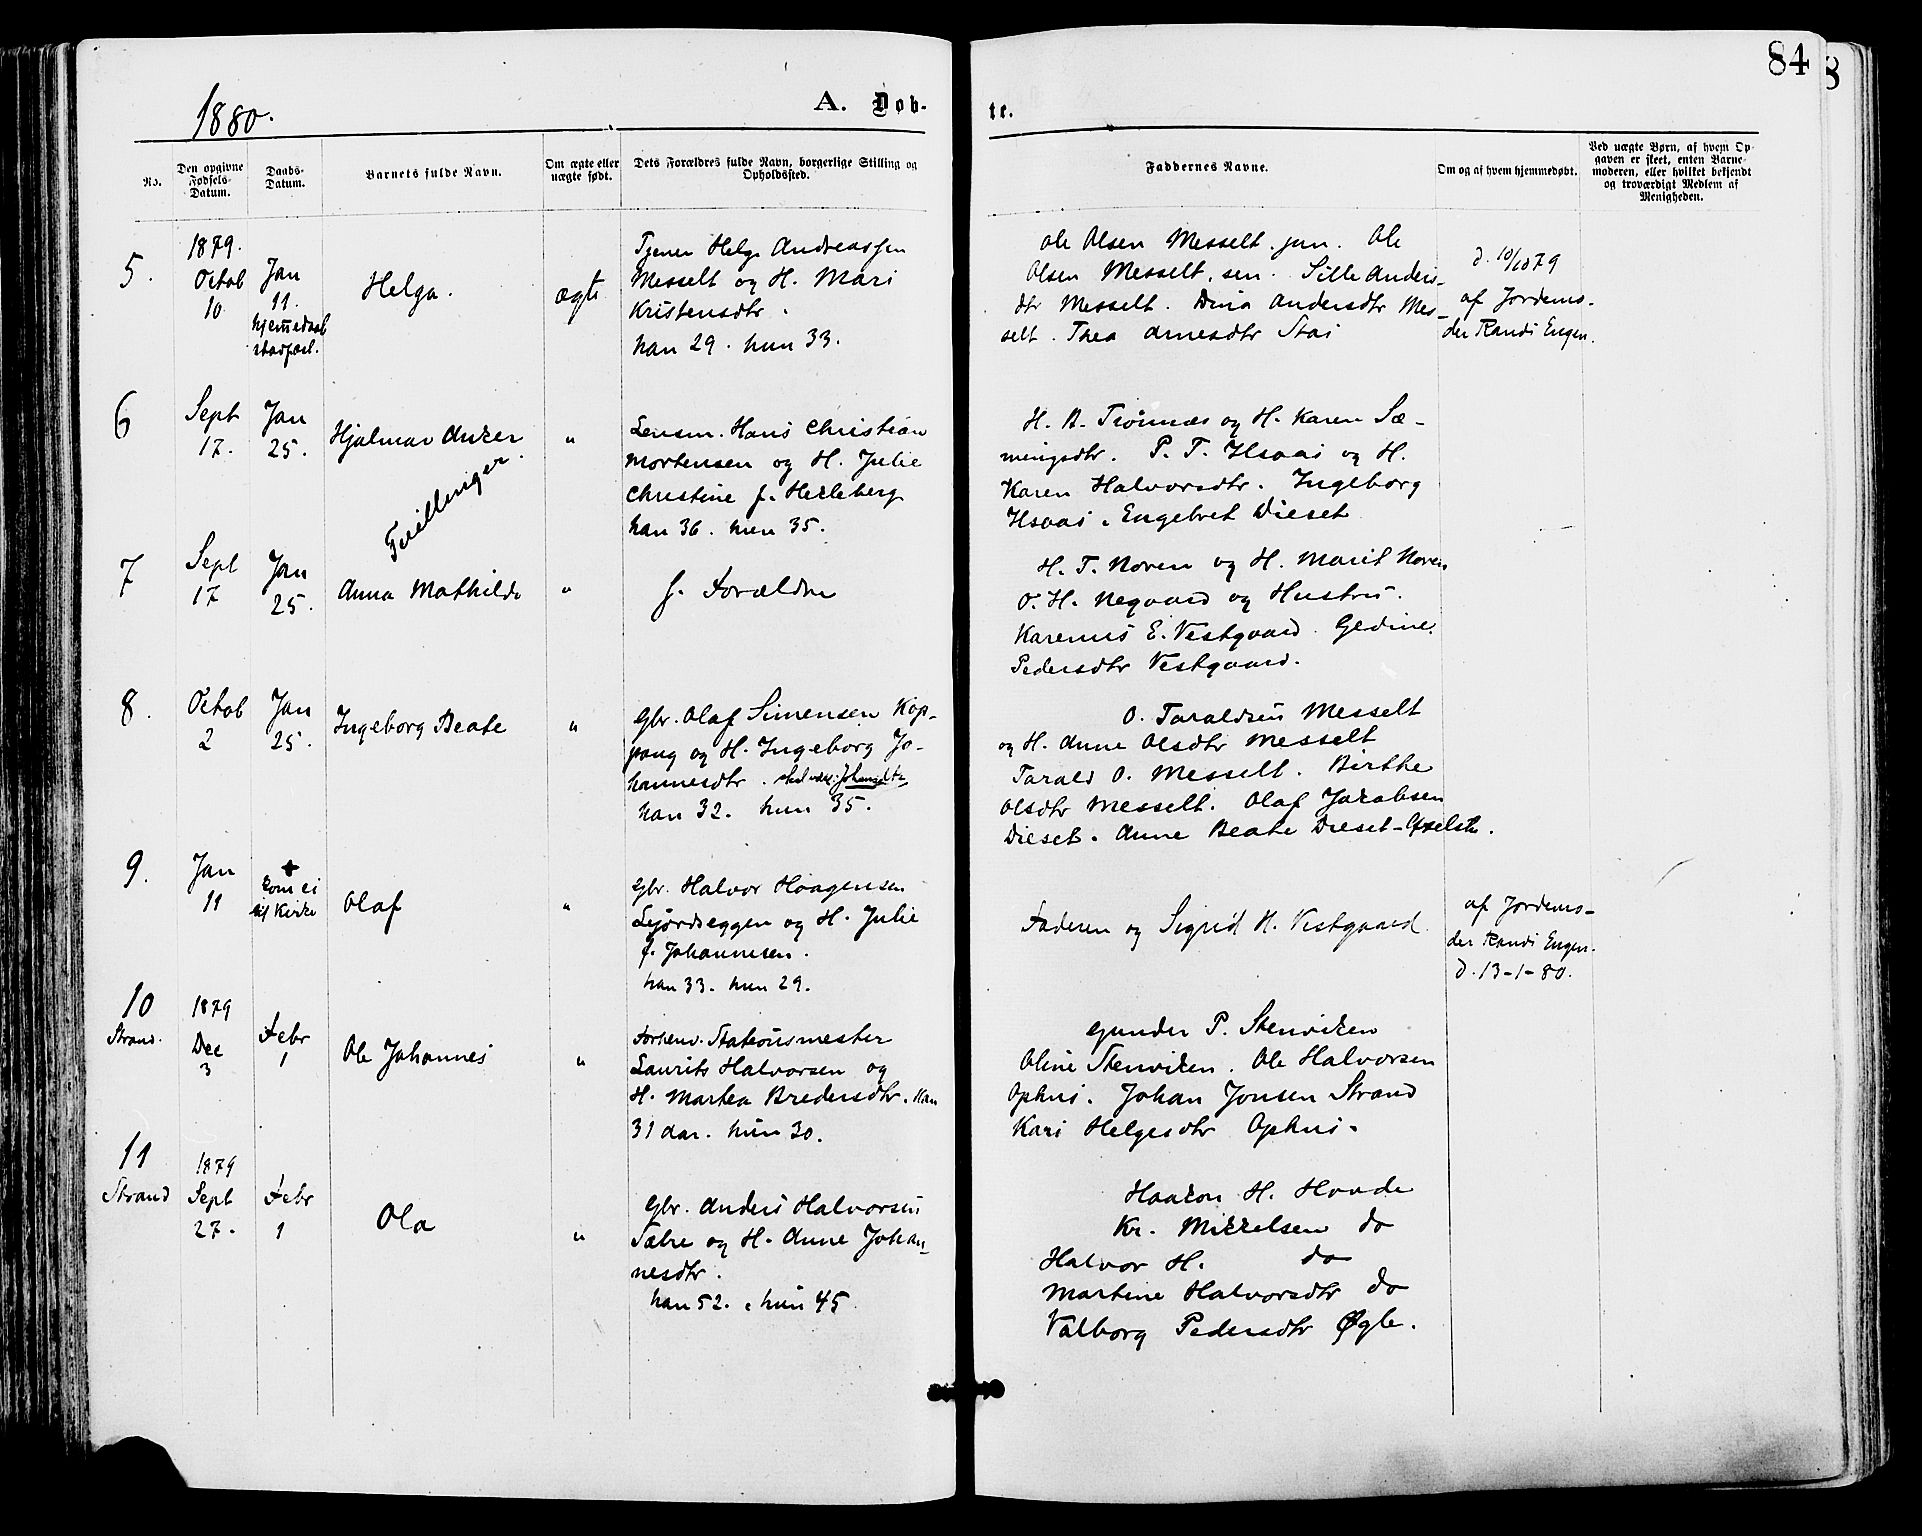 84
8
1880.
A. Døb-
te.
No.
Den opgivne
Fødsels-
Datum.
Daabs-
Datum.
Barnets fulde Navn.
Om ægte eller
uægte født.
Dets Forældres fulde Navn, borgerlige Stilling og
Opholdssted.
Faddernes Navne.
Om og af hvem hjemmedøbt.
Ved uægte Børn, af hvem Op-
gaven er skeet, enten Barne-
moderen, eller hvilket bekjendt
og troværdigt Medlem af
Menigheden.
5.
1879.
Octob
10
Jan
11.
hjemmedaab
stadfæst.
Helga.
ægte
Tjener Helge Andreassen
Messelt og H. Mari
Kristensdtr.
han 29. hun 33.
Ole Olsen Messelt. jun. Ole
Olsen Messelt, sen. Sille Anders-
dtr Messelt. Dina Andersdtr Mes-
selt. Thea Arnesdtr Stai
d. 10/10 79
af Jordemo-
der Randi Engen.
6
Sept
17.
Jan
25.
Hjalmar Anker
"
Lensm. Hans Christian
Mortensen og H. Julie
Christine f. Helleberg
han 36. hun 35.
H. A. Trønnæs og H. Karen Sæ-
mingsdtr. P. T. Hsaas og H.
Karen Halvorsdtr. Ingeborg
Hsaas. Engebret Dieset
Tvillinger.
7
Sept
17
Jan
25.
Anna Mathilde
"
f. Forældre
H. T. Noren og H. Marit Noren
O. H. Negaard og Hustru.
Karenus E. Vestgaard. Gedine
Pedersdtr Vestgaard.
8.
Octob
2
Jan
25.
Ingeborg Beate
"
Gbr. Olaf Simensen Kop-
pang og H. Ingeborg Jo-
hannesdtr. skal være: Johansdtr
han 32. hun 35.
O. Taraldsen Messelt
og H. Anne Olsdtr Messelt
Tarald O. Messelt. Birthe
Olsdtr Messelt. Olaf Jakobsen
Dieset. Anne Beate Dieset-
9.
Jan
11
+
kom ei
til Kirke
Olaf
"
Gbr. Halvor Haagensen
og H. Julie
f. Johannesen.
han 33. hun 29.
Faderen og Sigrid H. Vestgaard
af Jordemo-
der Randi Engen.
d. 13-1-80.
10
Strand.
1879
Dec
3
Febr
1
Ole Johannes
"
Forhenv. Stationsmester
Laurits Halvorsen og
H. Marthea Bredersdtr. Han
31 aar. hun 30.
Gunder P. Stenviken
Oline Stenviken. Ole Halvorsen
Ophus. Johan Jonsen Strand
Kari Helgesdtr Ophus.
11
Strand
1879
Sept
27.
Febr
1
Ola
"
Gbr. Anders Halvorsen
Sætre og H. Anne Johan-
nesdtr.
han 52. hun 45.
Haakon H. Hovde
Kr. Mikkelsen do
Halvor H. do
Martine Halvorsdtr do
Valborg Pedersdtr Øgle.